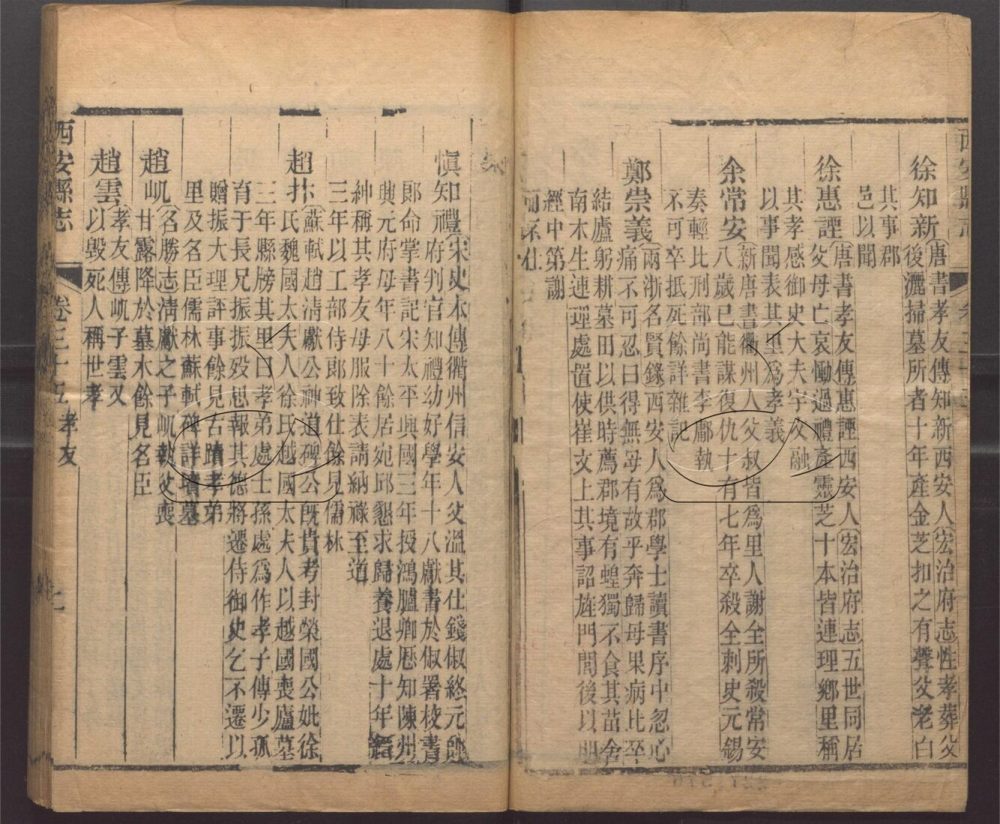 徐知新唐書孝友傳知新西安人宏治府志性孝葬父
後灑掃墓所者十年產金芝扣之有聲父老白
其事郡
邑以聞
徐惠諲唐書孝友傳惠諲西安人宏治府志五世同居
父母亡哀慟過禮產靈芝十本皆連理鄉里稱
其孝感御史大夫宇文融
以事聞表其里爲孝義
余常安新唐書衢州人父叔皆爲里人謝全所殺常安
八歲已能謀復仇十有七年卒殺全刺史元錫
奏輕比刑部尚書李鄘執
不可卒抵死餘詳雜記
鄭崇義兩浙名賢錄西安人爲郡學士讀書序中忽心
痛不可忍曰得無母有故乎奔歸母果病比卒
結廬躬耕墓田以供時薦郡境有蝗獨不食其苗舍
南木生連理處置使崔文上其事詔旌門閭後以明
經中第謝
而不仕
慎知禮宋史本傳衢州信安人父溫其仕錢俶終元帥
府判官知禮幼好學年十八獻書於俶署校書
郎命掌書記宋太平興國三年授鴻臚卿歷知陳州
興元府母年八十餘居宛邱懇求歸養退處十年縉
紳稱其孝友母服除表請納祿至道
三年以工部侍郎致仕餘見儒林
趙抃蘇軾趙清獻公神道碑公既貴考封榮國公妣徐
氏魏國太夫人徐氏越國太夫人以越國喪廬墓
三年縣榜其里曰孝弟處士孫處爲作孝子傳少孤
育于長兄振振歿思報其德將遷侍御史乞不遷以
贈振大理評事餘見古蹟孝弟
里及名臣儒林蘇軾碑詳墳墓
趙㞦名勝志清獻之子㞦執父喪
甘露降於墓木餘見名臣
趙雲孝友傳㞦子雲又
以毀死人稱世孝
西安縣志
卷三十五 孝友